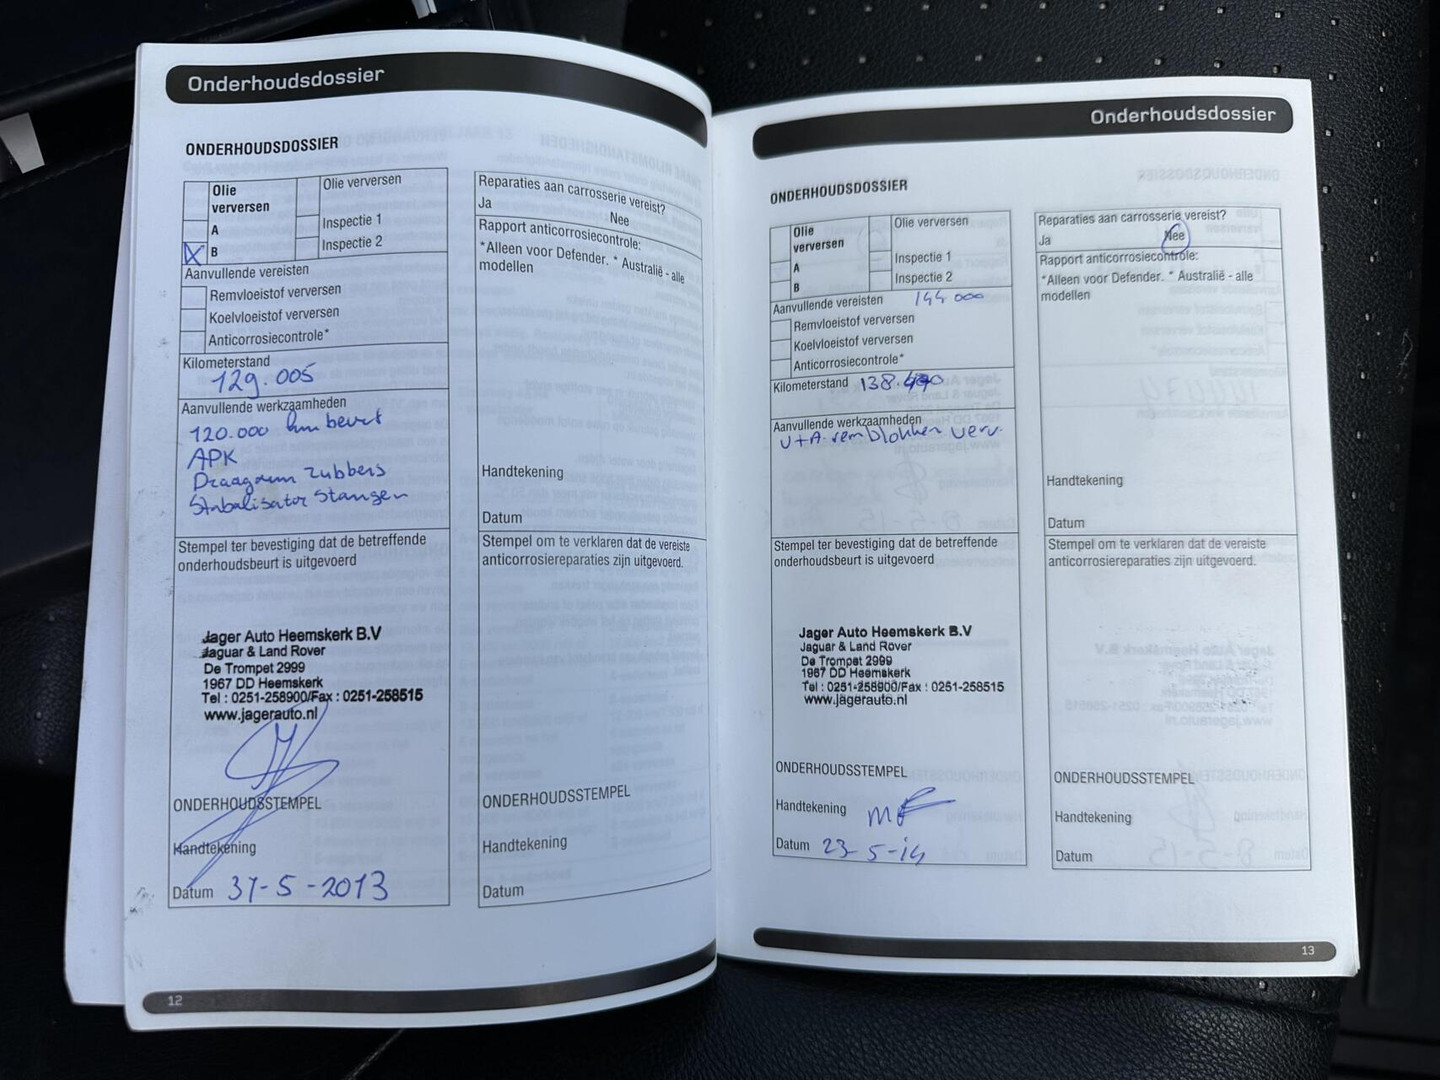 Onderhoudsdossier
ONDERHOUDSDOSSIER
Olie verversen
A
B
Olie verversen
Inspectie 1
Inspectie 2
Aanvullende vereisten
Remvloeistof verversen
Koelvloeistof verversen
Anticorrosiecontrole*
Kilometerstand
129.005
Aanvullende werkzaamheden
120.000 km beurt
APK
Draagarm rubbers
Stabalisator Stangen
Stempel ter bevestiging dat de betreffende
onderhoudsbeurt is uitgevoerd
Jager Auto Heemskerk B.V
Jaguar & Land Rover
De Trompet 2999
1967 DD Heemskerk
Tel : 0251-258900/Fax : 0251-258515
www.jagerauto.nl
ONDERHOUDSSTEMPEL
Handtekening
Datum 31-5-2013
Reparaties aan carrosserie vereist?
Ja Nee
Rapport anticorrosiecontrole:
*Alleen voor Defender. * Australië - alle
modellen
Handtekening
Datum
Stempel om te verklaren dat de vereiste
anticorrosiereparaties zijn uitgevoerd.
ONDERHOUDSSTEMPEL
Handtekening
Datum
12
Onderhoudsdossier
ONDERHOUDSDOSSIER
Olie verversen
A
B
Olie verversen
Inspectie 1
Inspectie 2
Aanvullende vereisten 144 000
Remvloeistof verversen
Koelvloeistof verversen
Anticorrosiecontrole*
Kilometerstand
Aanvullende werkzaamheden
V+A remblokken verv.
Stempel ter bevestiging dat de betreffende
onderhoudsbeurt is uitgevoerd
Jager Auto Heemskerk B.V
Jaguar & Land Rover
De Trompet 2999
1967 DD Heemskerk
Tel : 0251-258900/Fax : 0251-258515
www.jagerauto.nl
ONDERHOUDSSTEMPEL
Handtekening
Datum 23-5-14
Reparaties aan carrosserie vereist?
Ja Nee
Rapport anticorrosiecontrole:
*Alleen voor Defender. * Australië - alle
modellen
Handtekening
Datum
Stempel om te verklaren dat de vereiste
anticorrosiereparaties zijn uitgevoerd.
ONDERHOUDSSTEMPEL
Handtekening
Datum
13